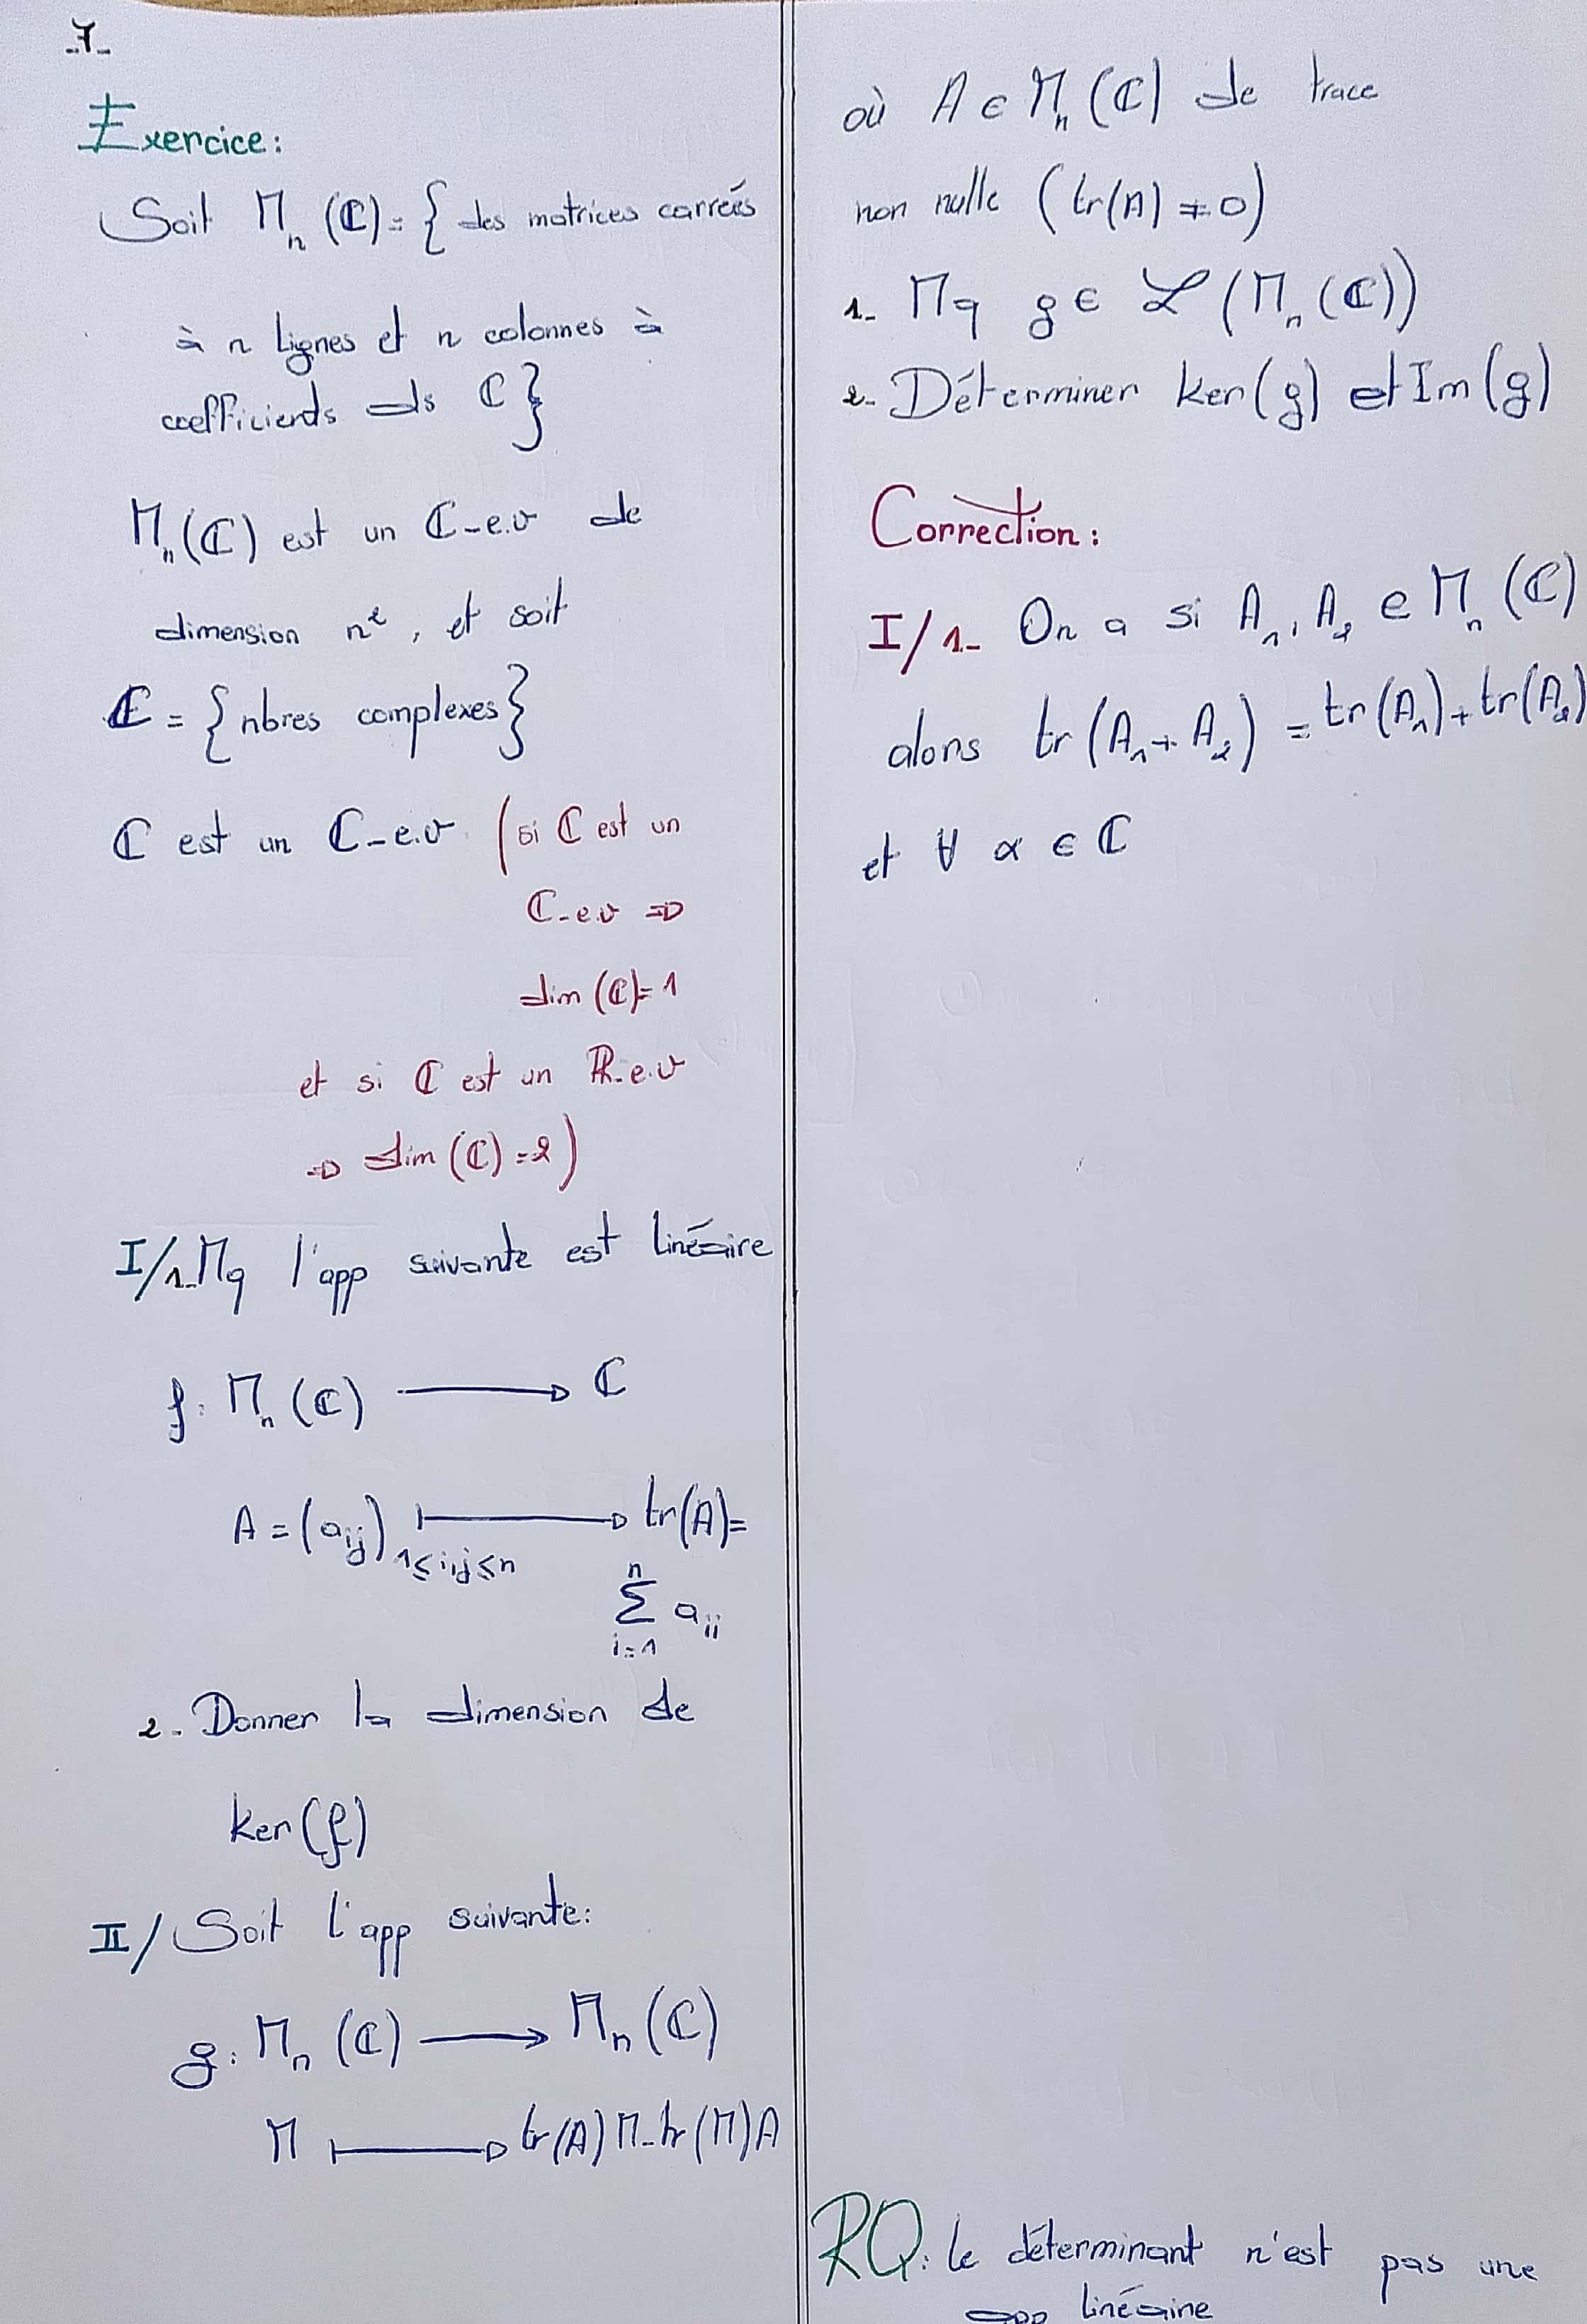 -7-
Exercice:
Soit M_n (ℂ) = { des matrices carrées
à n lignes et n colonnes à
coefficients ds ℂ }
M_n(ℂ) est un ℂ-e.v de
dimension n², et soit
ℂ = { nbres complexes }
ℂ est un ℂ-e.v (si ℂ est un
ℂ-e.v ⇒
dim (ℂ) = 1
et si ℂ est un ℝ-e.v
⇒ dim (ℂ) = 2)
I/1- Mq l'app suivante est linéaire
f: M_n (ℂ) → ℂ
A = (a_ij)_1≤i,j≤n ↦ tr(A) =
∑_{i=1}^{n} a_ii
2- Donner la dimension de
ker(f)
II/ Soit l'app suivante:
g: M_n (ℂ) → M_n (ℂ)
M ↦ tr(A) M - tr(M) A
où A ∈ M_n (ℂ) de trace
non nulle (tr(A) ≠ 0)
1- Mq g ∈ ℒ (M_n (ℂ))
2- Déterminer ker(g) et Im(g)
Correction:
I/ 1- On a si A_1, A_2 ∈ M_n (ℂ)
alors tr (A_1 + A_2) = tr(A_1) + tr(A_2)
et ∀ α ∈ ℂ
RQ: le déterminant n'est pas une
app linéaire